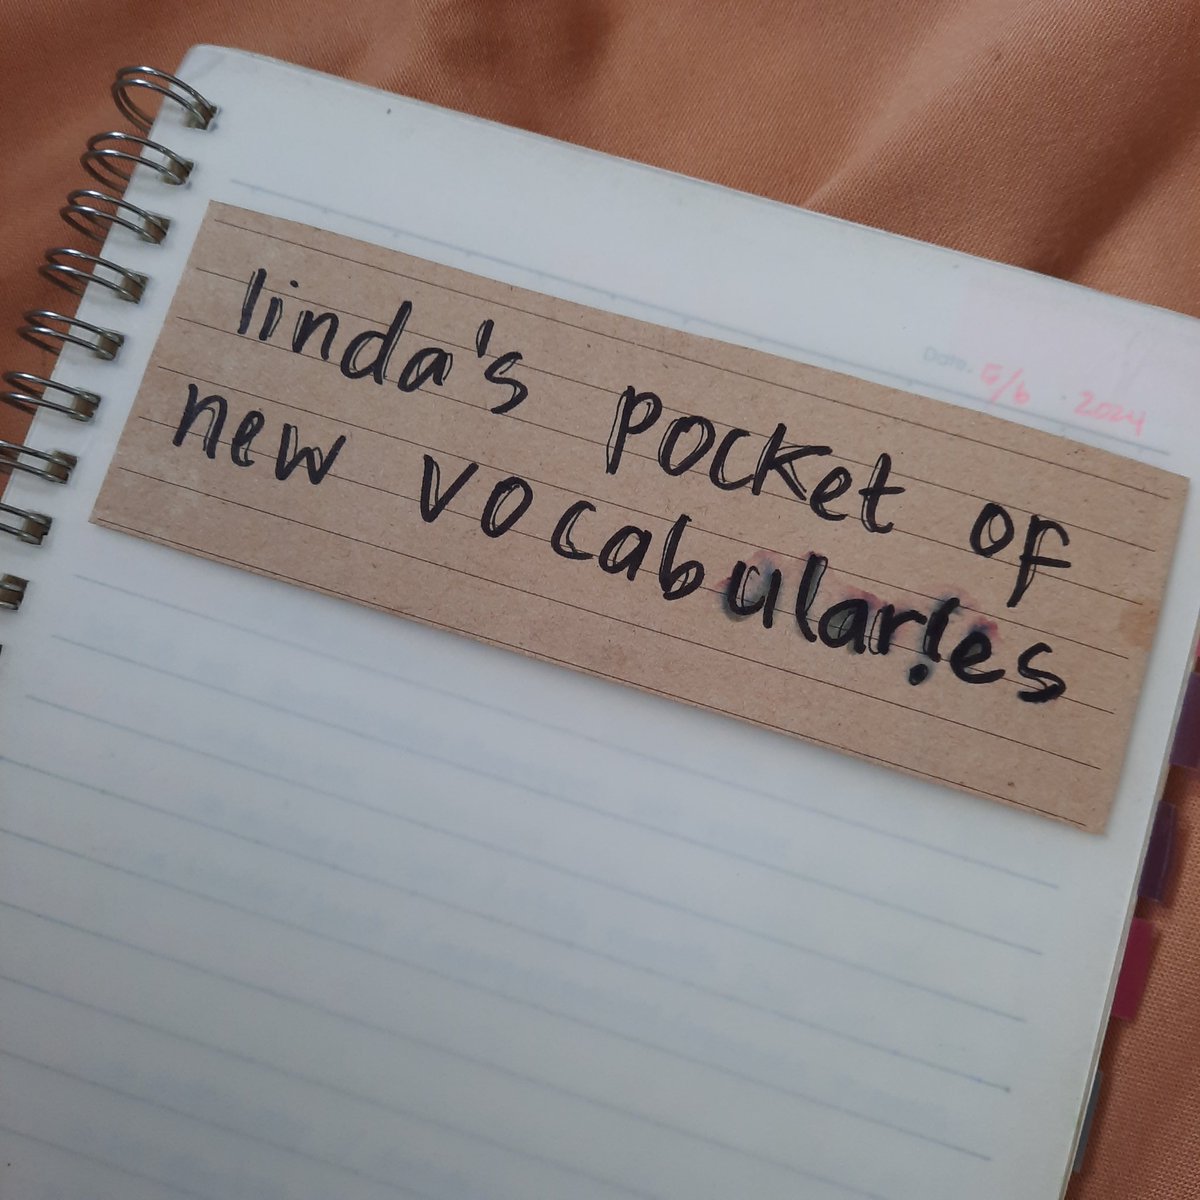 Date. 5/6 2024
linda's pocket of
new vocabular!es